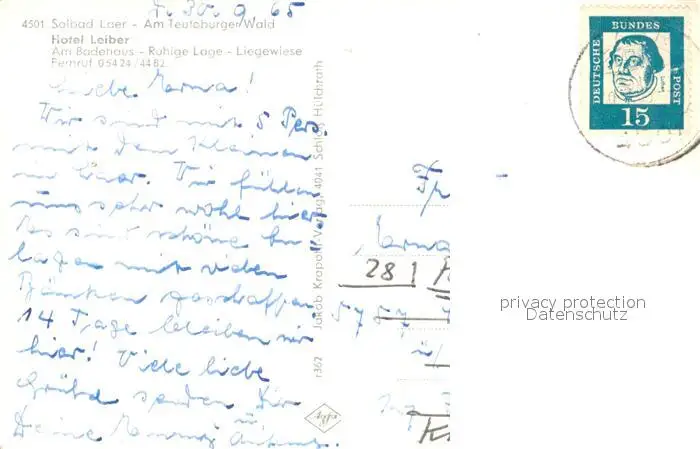 30. 9. 65
4501 Solbad Laer - Am Teutoburger Wald
Hotel Leiber
Am Badehaus - Ruhige Lage - Liegewiese
Fernruf 05424/4482
Liebe Erna!
Wir sind mit 5 Pers.
mit dem Kleinen
in Laer. Wir fühlen
uns sehr wohl hier.
Es sind schöne An
lagen mit vielen
Bänken geschaffen.
14 Tage bleiben wir
hier! Viele liebe
Grüße senden Dir
Deine u.
r362 Jakob Krapohl-Verlag, 4041 Schloß Hülchrath
Agfa
DEUTSCHE BUNDESPOST
15
Erna
281
57
ü/
privacy protection
Datenschutz